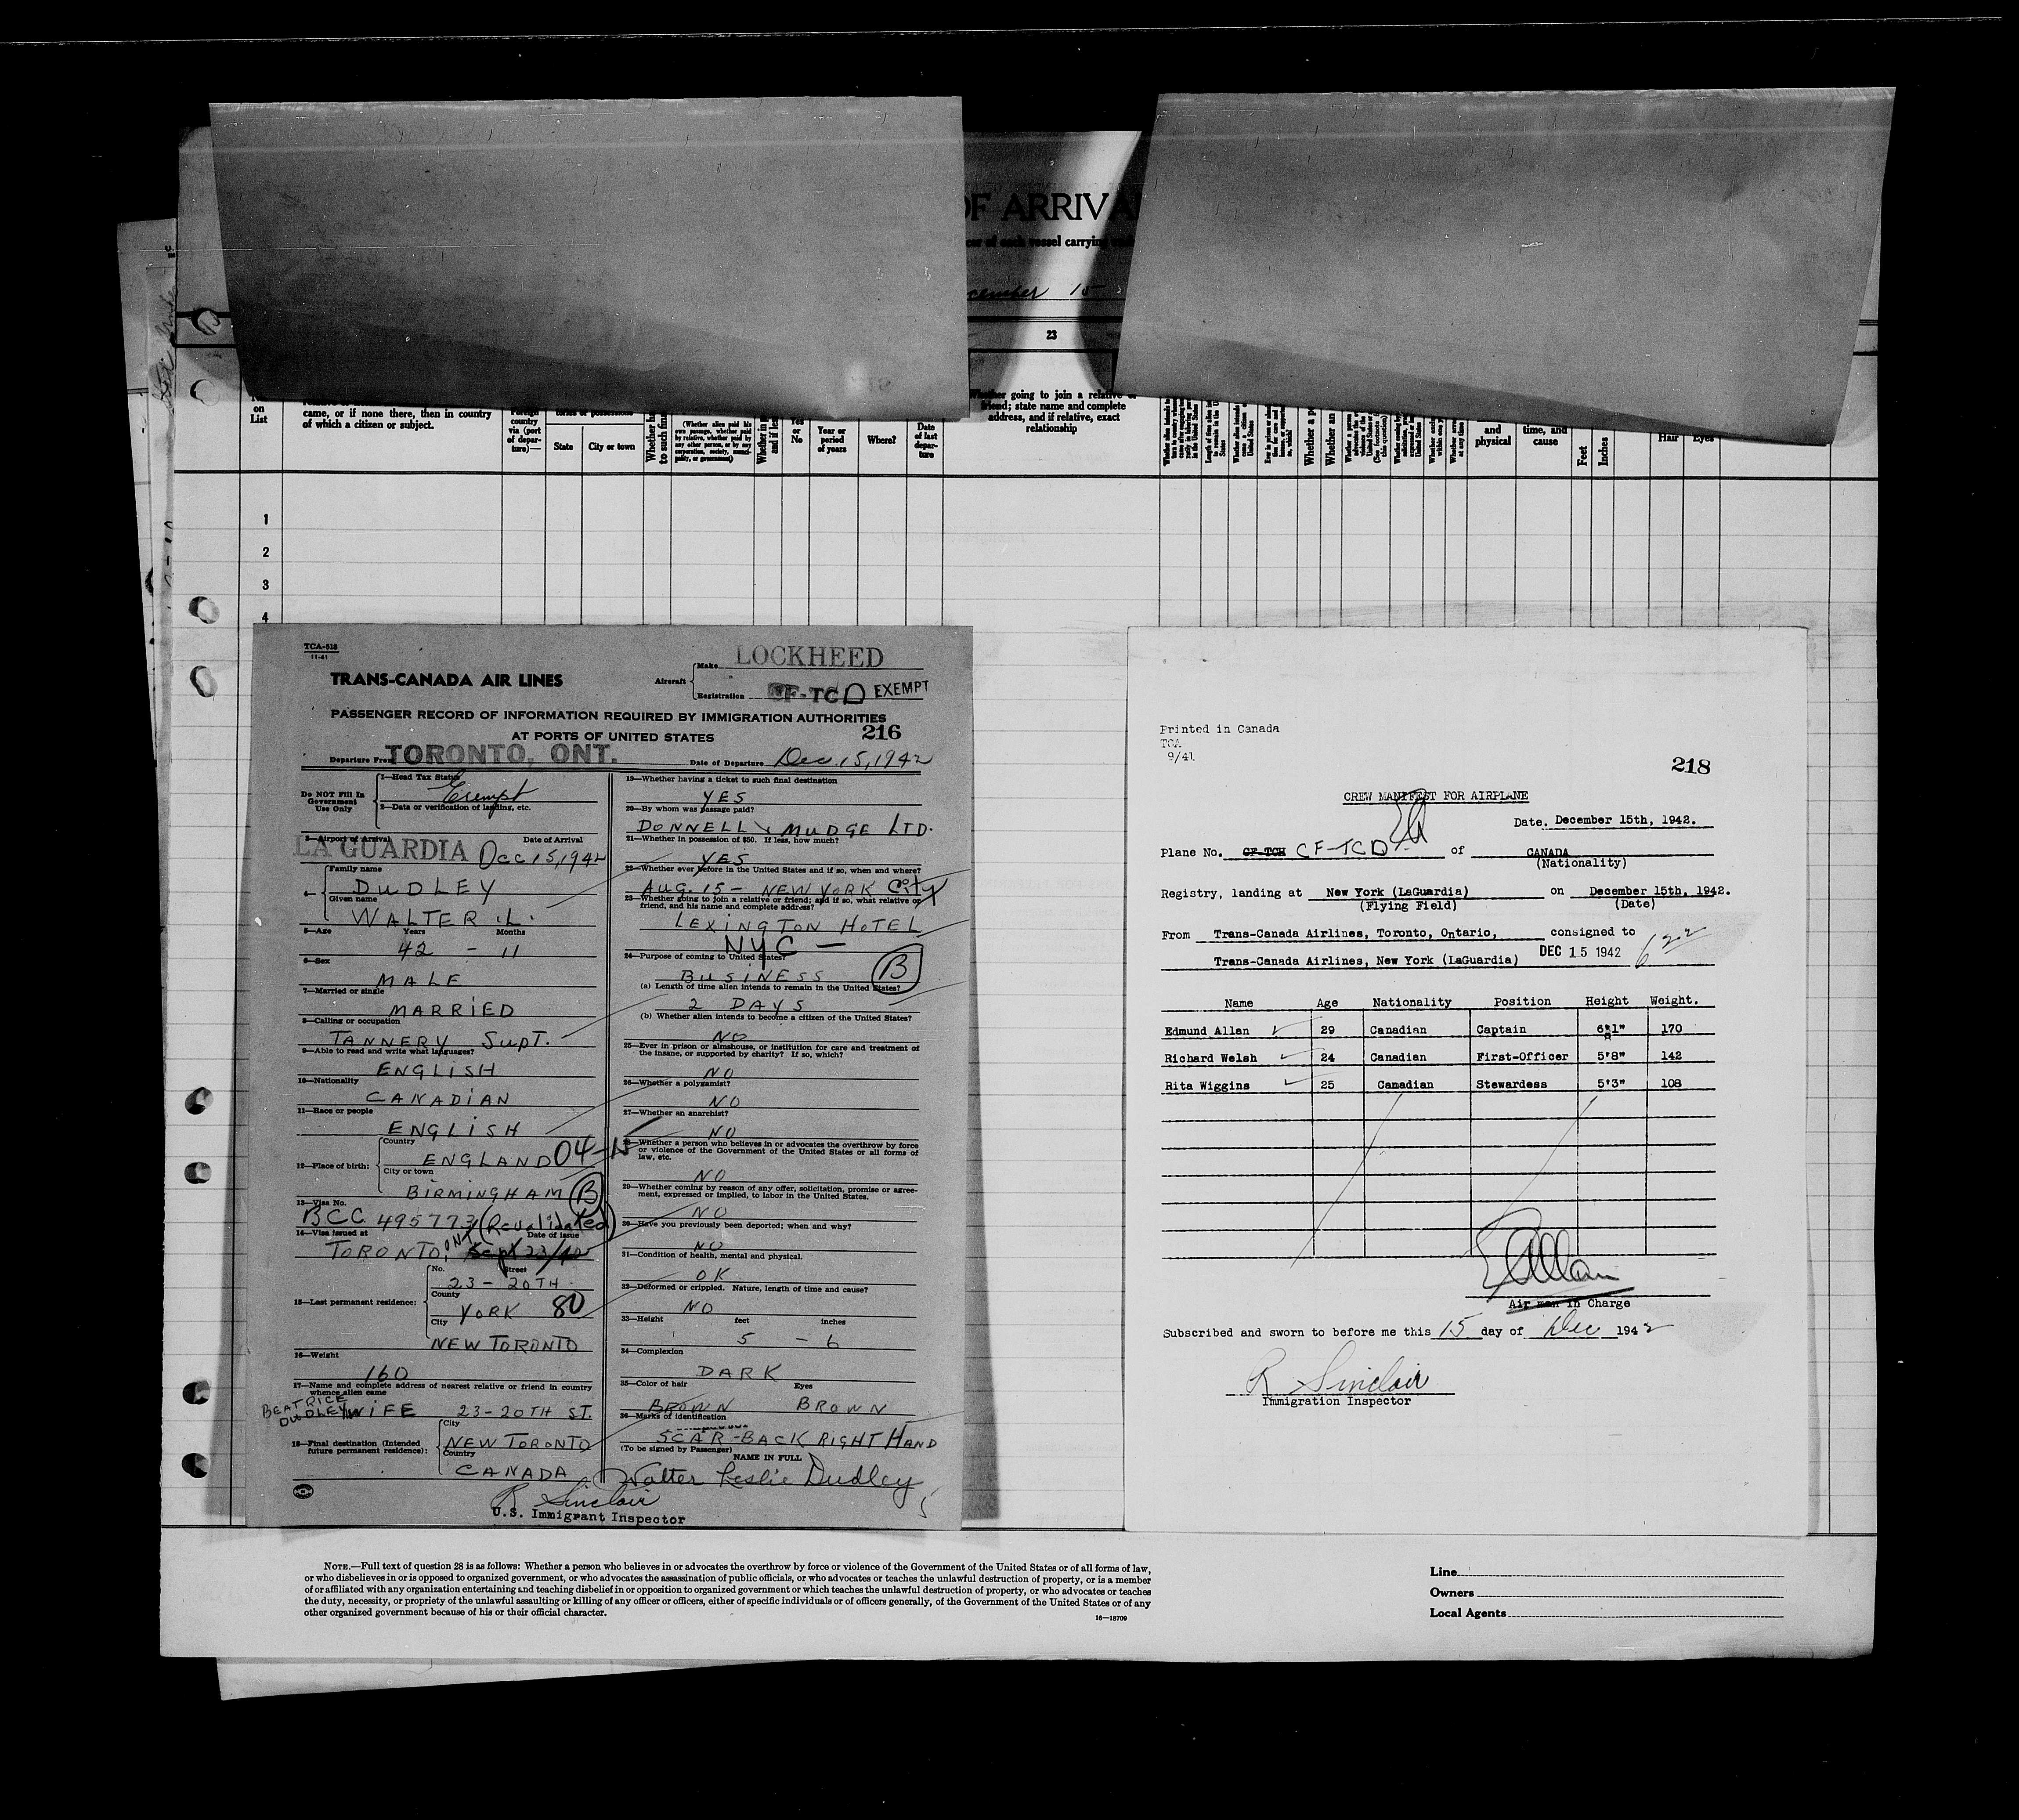 OF ARRIVAL
of each vessel carrying
cember 15
23
on
List
came, or if none there, then in country
of which a citizen or subject.
Foreign
country
via (port
of depar-
ture)—
State
City or town
(Whether alien paid his
own passage, whether paid
by relative, whether paid by
any other person, or by any
corporation, society, munici-
pality, or government)
Yes
or
No
Year or
period
of years
Where?
Date
of last
depar-
ture
Whether going to join a relative or
friend; state name and complete
address, and if relative, exact
relationship
and
physical
time, and
cause
Feet
Inches
Hair
Eyes
1
2
3
4
TCA-518
11-41
TRANS-CANADA AIR LINES
Aircraft
Make LOCKHEED
Registration CF-TCD EXEMPT
PASSENGER RECORD OF INFORMATION REQUIRED BY IMMIGRATION AUTHORITIES
AT PORTS OF UNITED STATES
216
Departure From TORONTO, ONT.
Date of Departure Dec. 15, 1942
Do NOT Fill In
Government
Use Only
1—Head Tax Status
Exempt
2—Data or verification of landing, etc.
3—Airport of Arrival
Date of Arrival
LA GUARDIA Dec 15, 1942
4—
Family name
DUDLEY
Given name
WALTER .L.
5—Age
Years
Months
42 - 11
6—Sex
MALE
7—Married or single
MARRIED
8—Calling or occupation
TANNERY SUPT.
9—Able to read and write what languages?
ENGLISH
10—Nationality
CANADIAN
11—Race or people
ENGLISH
12—Place of birth:
Country
ENGLAND 04-N
City or town
BIRMINGHAM B
13—Visa No.
BCC 495773 (Revalidated)
14—Visa issued at
Date of issue
TORONTO, ONT Sept 23/42
15—Last permanent residence:
No.
Street
23 - 20TH
County
YORK 80
City
NEW TORONTO
16—Weight
160
17—Name and complete address of nearest relative or friend in country
whence alien came
BEATRICE
DUDLEY WIFE 23-20TH ST.
18—Final destination (Intended
future permanent residence):
City
NEW TORONTO
Country
CANADA
19—Whether having a ticket to such final destination
YES
20—By whom was passage paid?
DONNELL & MUDGE LTD.
21—Whether in possession of $50. If less, how much?
YES
22—Whether ever before in the United States and if so, when and where?
AUG. 15 - NEW YORK CITY
23—Whether going to join a relative or friend; and if so, what relative or
friend, and his name and complete address?
LEXINGTON HOTEL
NYC —
24—Purpose of coming to United States?
BUSINESS B
(a) Length of time alien intends to remain in the United States?
2 DAYS
(b) Whether alien intends to become a citizen of the United States?
NO
25—Ever in prison or almshouse, or institution for care and treatment of
the insane, or supported by charity? If so, which?
NO
26—Whether a polygamist?
NO
27—Whether an anarchist?
NO
28—Whether a person who believes in or advocates the overthrow by force
or violence of the Government of the United States or all forms of
law, etc.
NO
29—Whether coming by reason of any offer, solicitation, promise or agree-
ment, expressed or implied, to labor in the United States.
NO
30—Have you previously been deported; when and why?
NO
31—Condition of health, mental and physical.
OK
32—Deformed or crippled. Nature, length of time and cause?
NO
33—Height
feet
inches
5 - 6
34—Complexion
DARK
35—Color of hair
Eyes
BROWN BROWN
36—Marks of identification
SCAR-BACK RIGHT HAND
(To be signed by Passenger)
NAME IN FULL
Walter Leslie Dudley
R Sinclair
U.S. Immigrant Inspector
Printed in Canada
TCA
9/41
218
CREW MANIFEST FOR AIRPLANE
Date. December 15th, 1942.
Plane No. CF-TCH CF-TCD of CANADA
(Nationality)
Registry, landing at New York (LaGuardia) on December 15th, 1942.
(Flying Field)
(Date)
From Trans-Canada Airlines, Toronto, Ontario, consigned to
Trans-Canada Airlines, New York (LaGuardia) DEC 15 1942
Name Age Nationality Position Height Weight.
Edmund Allan 29 Canadian Captain 6'1" 170
Richard Welsh 24 Canadian First-Officer 5'8" 142
Rita Wiggins 25 Canadian Stewardess 5'3" 108
EAllan
Air man in Charge
Subscribed and sworn to before me this 15 day of Dec 1942
R Sinclair
Immigration Inspector
NOTE.—Full text of question 28 is as follows: Whether a person who believes in or advocates the overthrow by force or violence of the Government of the United States or of all forms of law,
or who disbelieves in or is opposed to organized government, or who advocates the assassination of public officials, or who advocates or teaches the unlawful destruction of property, or is a member
of or affiliated with any organization entertaining and teaching disbelief in or opposition to organized government or which teaches the unlawful destruction of property, or who advocates or teaches
the duty, necessity, or propriety of the unlawful assaulting or killing of any officer or officers, either of specific individuals or of officers generally, of the Government of the United States or of any
other organized government because of his or their official character.
16—18709
Line
Owners
Local Agents